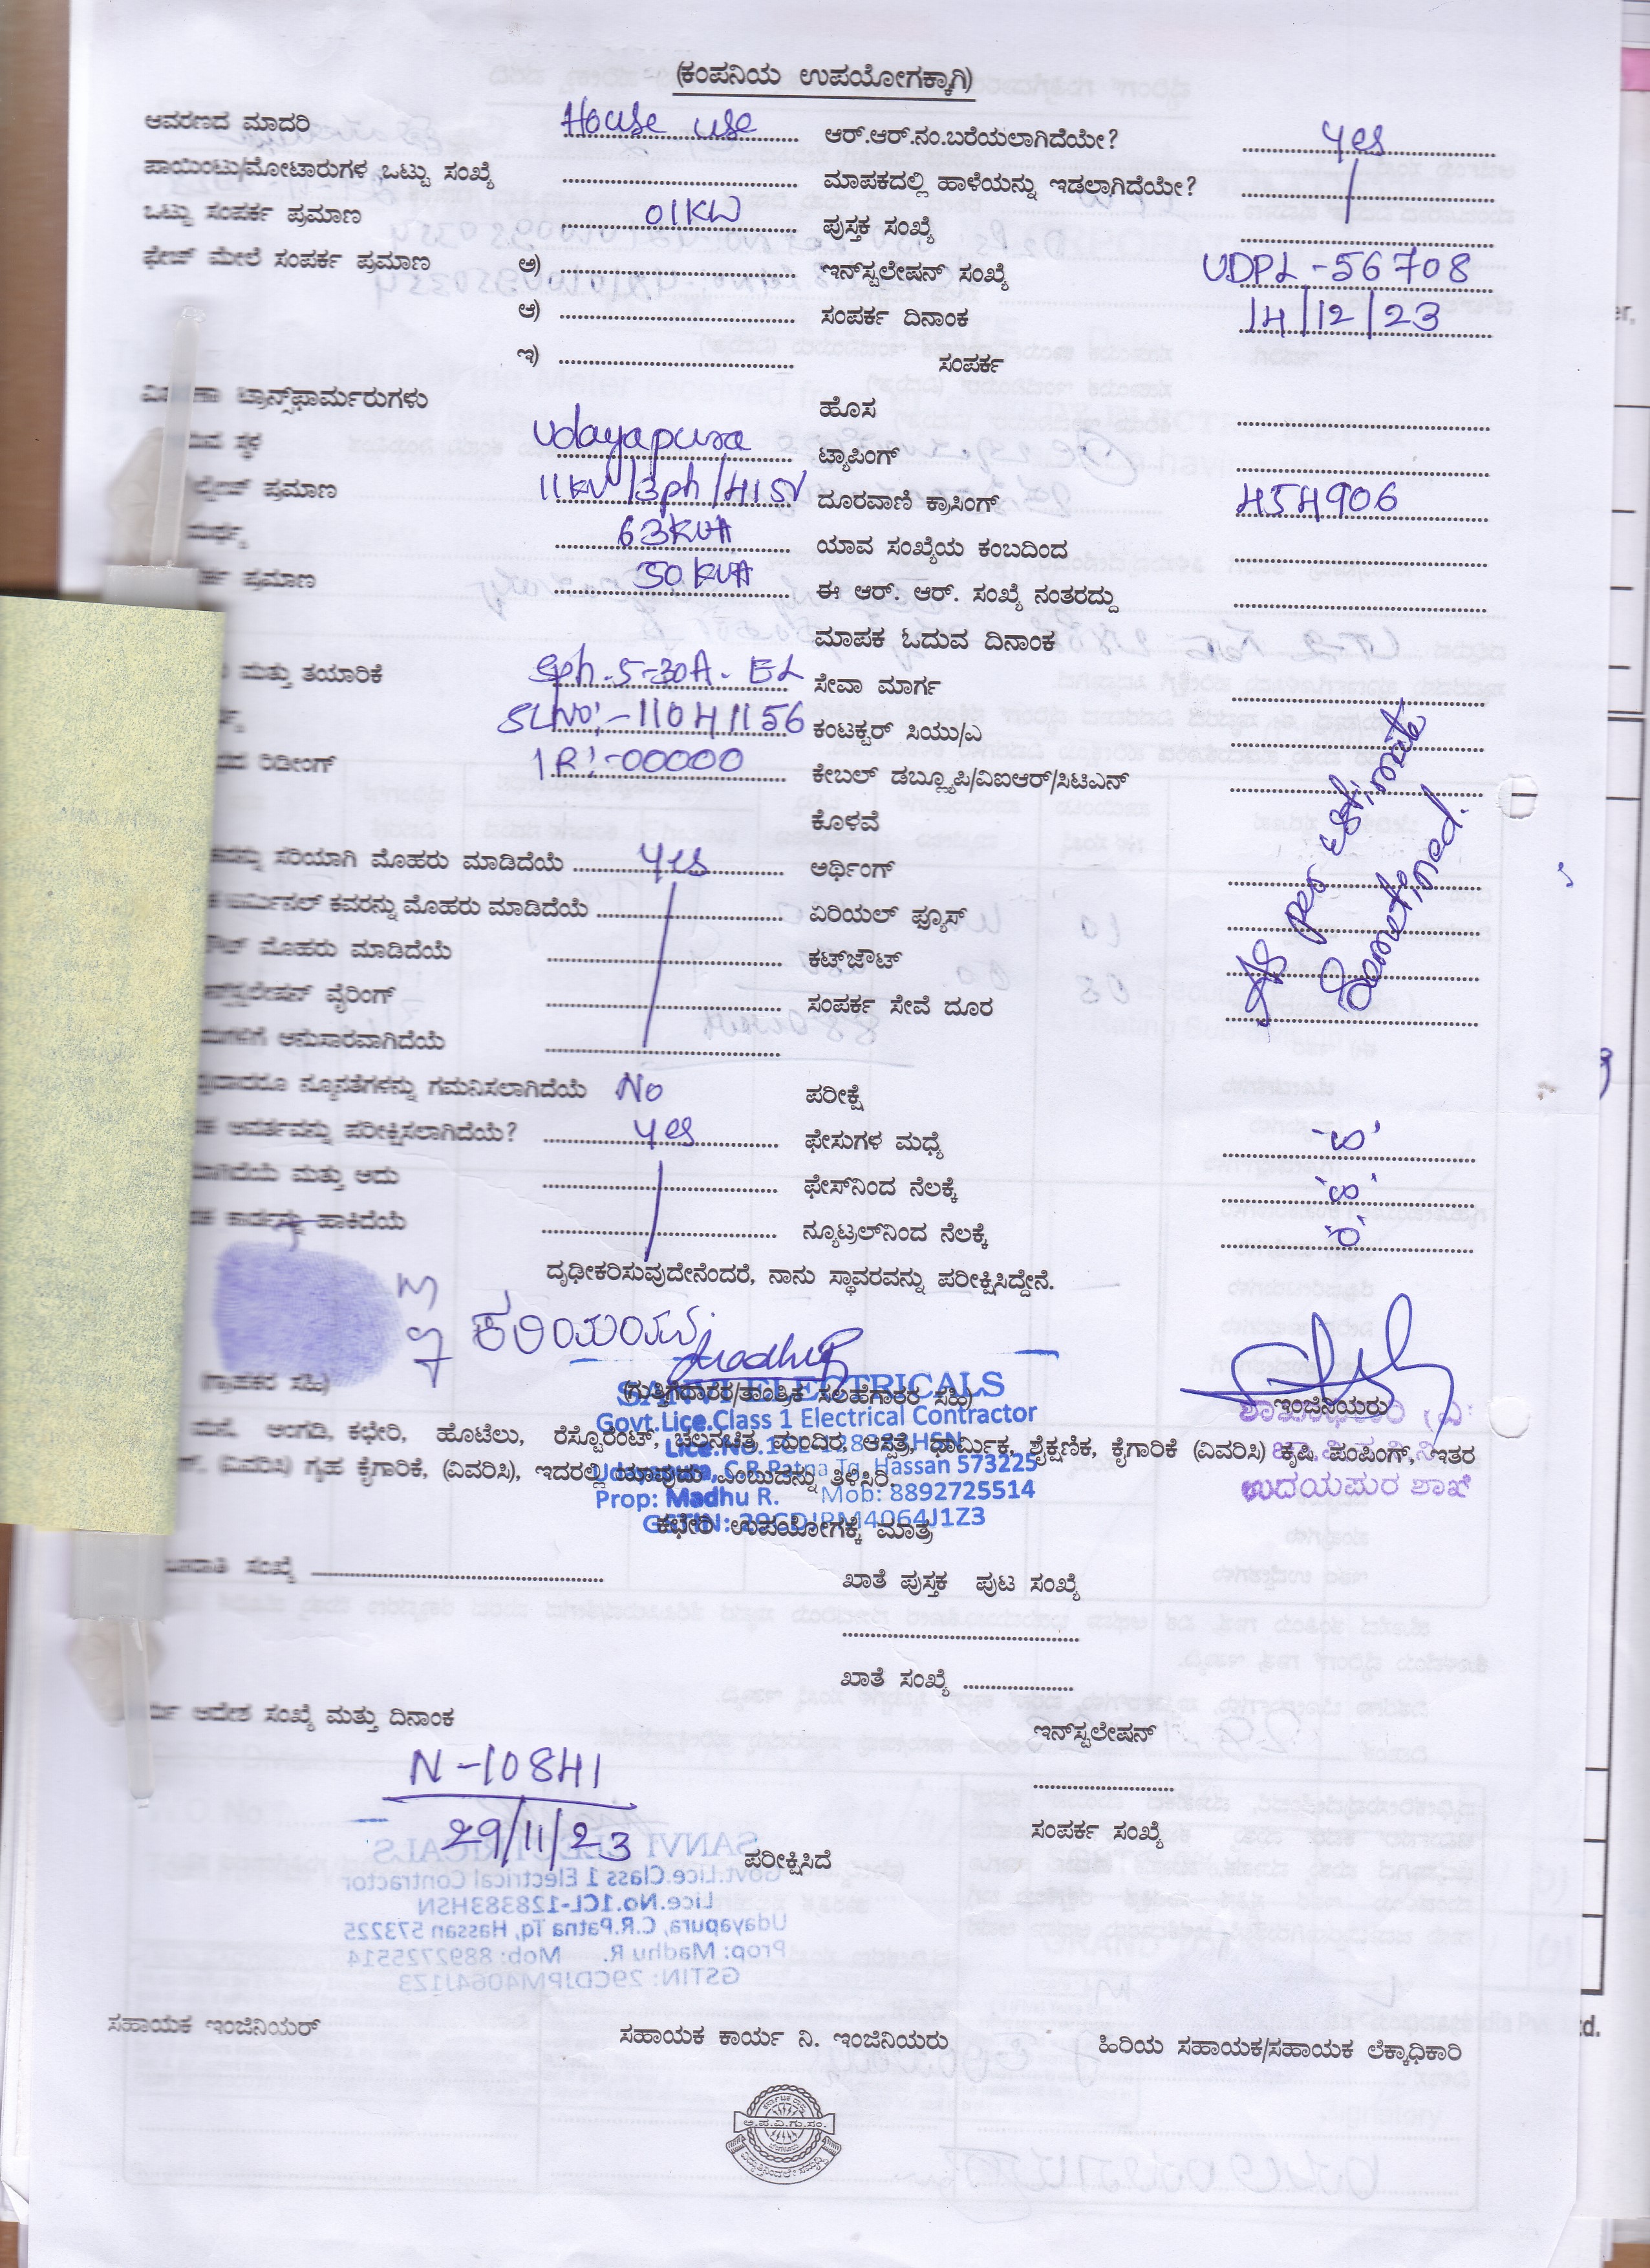 (ಕಂಪನಿಯ ಉಪಯೋಗಕ್ಕಾಗಿ)
ಆವರಣದ ಮಾದರಿ House use ಆರ್.ಆರ್.ನಂ.ಬರೆಯಲಾಗಿದೆಯೇ? yes
ಪಾಯಿಂಟು/ಮೋಟಾರುಗಳ ಒಟ್ಟು ಸಂಖ್ಯೆ ಮಾಪಕದಲ್ಲಿ ಹಾಳೆಯನ್ನು ಇಡಲಾಗಿದೆಯೇ?
ಒಟ್ಟು ಸಂಪರ್ಕ ಪ್ರಮಾಣ 01KW ಪುಸ್ತಕ ಸಂಖ್ಯೆ
ಫೇಜ್ ಮೇಲೆ ಸಂಪರ್ಕ ಪ್ರಮಾಣ ಅ) ಇನ್‌ಸ್ಟಲೇಷನ್ ಸಂಖ್ಯೆ UDPL-56708
ಆ) ಸಂಪರ್ಕ ದಿನಾಂಕ 14/12/23
ಇ) ಸಂಪರ್ಕ
ಟ್ರಾನ್ಸ್‌ಫಾರ್ಮರುಗಳು ಹೊಸ
ಸ್ಥಳ Udayapura ಟ್ಯಾಪಿಂಗ್
ಪ್ರಮಾಣ 11KV/3ph/415V ದೂರವಾಣಿ ಕ್ರಾಸಿಂಗ್ 454906
63KVA ಯಾವ ಸಂಖ್ಯೆಯ ಕಂಬದಿಂದ
ಪ್ರಮಾಣ 50KVA ಈ ಆರ್. ಆರ್. ಸಂಖ್ಯೆ ನಂತರದ್ದು
ಮಾಪಕ ಓದುವ ದಿನಾಂಕ
ಮತ್ತು ತಯಾರಿಕೆ Sph.5-30A. EL ಸೇವಾ ಮಾರ್ಗ
SLNo:-11041156 ಕಂಟಕ್ಟರ್ ಸಿಯು/ಎ
ರಿಡೀಂಗ್ IR:-00000 ಕೇಬಲ್ ಡಬ್ಲ್ಯೂಪಿ/ವಿಐಆರ್/ಸಿಟಿಎನ್
ಕೊಳವೆ
As per estimate
Sanctioned.
ಸರಿಯಾಗಿ ಮೊಹರು ಮಾಡಿದೆಯೆ yes ಅರ್ಥಿಂಗ್
ಟರ್ಮಿನಲ್ ಕವರನ್ನು ಮೊಹರು ಮಾಡಿದೆಯೆ ಏರಿಯಲ್ ಫ್ಯೂಸ್
ಮೊಹರು ಮಾಡಿದೆಯೆ ಕಟ್‌ಜೌಟ್
ವೈರಿಂಗ್ ಸಂಪರ್ಕ ಸೇವೆ ದೂರ
ಅನುಸಾರವಾಗಿದೆಯೆ
ನ್ಯೂನತೆಗಳನ್ನು ಗಮನಿಸಲಾಗಿದೆಯೆ No ಪರೀಕ್ಷೆ
ಆವರ್ತವನ್ನು ಪರೀಕ್ಷಿಸಲಾಗಿದೆಯೆ? yes ಫೇಸುಗಳ ಮಧ್ಯೆ
ಮತ್ತು ಅದು ಫೇಸ್‌ನಿಂದ ನೆಲಕ್ಕೆ
ಕಾರ್ಡನ್ನು ಹಾಕಿದೆಯೆ ನ್ಯೂಟ್ರಲ್‌ನಿಂದ ನೆಲಕ್ಕೆ
ದೃಢೀಕರಿಸುವುದೇನೆಂದರೆ, ನಾನು ಸ್ಥಾವರವನ್ನು ಪರೀಕ್ಷಿಸಿದ್ದೇನೆ.
Madhu R
(ಗ್ರಾಹಕರ ಸಹಿ) (ಗುತ್ತಿಗೆದಾರರ/ತಾಂತ್ರಿಕ ಸಲಹೆಗಾರರ ಸಹಿ) ಇಂಜಿನಿಯರು
SANVI ELECTRICALS
Govt.Lice.Class 1 Electrical Contractor
Lice.No.1CL-128383HSN
Udayapura, C.R.Patna Tq, Hassan 573225
Prop: Madhu R. Mob: 8892725514
GSTIN: 29CDJPM4064J1Z3
ಉದಯಪುರ ಶಾಖೆ
ಮನೆ, ಅಂಗಡಿ, ಕಛೇರಿ, ಹೊಟೆಲು, ರೆಸ್ಟೊರೆಂಟ್, ಚಲನಚಿತ್ರ ಮಂದಿರ, ಆಸ್ಪತ್ರೆ, ಧಾರ್ಮಿಕ, ಶೈಕ್ಷಣಿಕ, ಕೈಗಾರಿಕೆ (ವಿವರಿಸಿ) ಕೃಷಿ, ಪಂಪಿಂಗ್, ಇತರ
(ವಿವರಿಸಿ) ಗೃಹ ಕೈಗಾರಿಕೆ, (ವಿವರಿಸಿ), ಇದರಲ್ಲಿ ಯಾವುದು ಎಂಬುದನ್ನು ತಿಳಿಸಿರಿ.
ಕಛೇರಿ ಉಪಯೋಗಕ್ಕೆ ಮಾತ್ರ
ಸಂಖ್ಯೆ ಖಾತೆ ಪುಸ್ತಕ ಪುಟ ಸಂಖ್ಯೆ
ಖಾತೆ ಸಂಖ್ಯೆ
ಆದೇಶ ಸಂಖ್ಯೆ ಮತ್ತು ದಿನಾಂಕ ಇನ್‌ಸ್ಟಲೇಷನ್
N-10841
29/11/23
ಸಂಪರ್ಕ ಸಂಖ್ಯೆ
ಪರೀಕ್ಷಿಸಿದೆ
ಸಹಾಯಕ ಇಂಜಿನಿಯರ್ ಸಹಾಯಕ ಕಾರ್ಯ ನಿ. ಇಂಜಿನಿಯರು ಹಿರಿಯ ಸಹಾಯಕ/ಸಹಾಯಕ ಲೆಕ್ಕಾಧಿಕಾರಿ